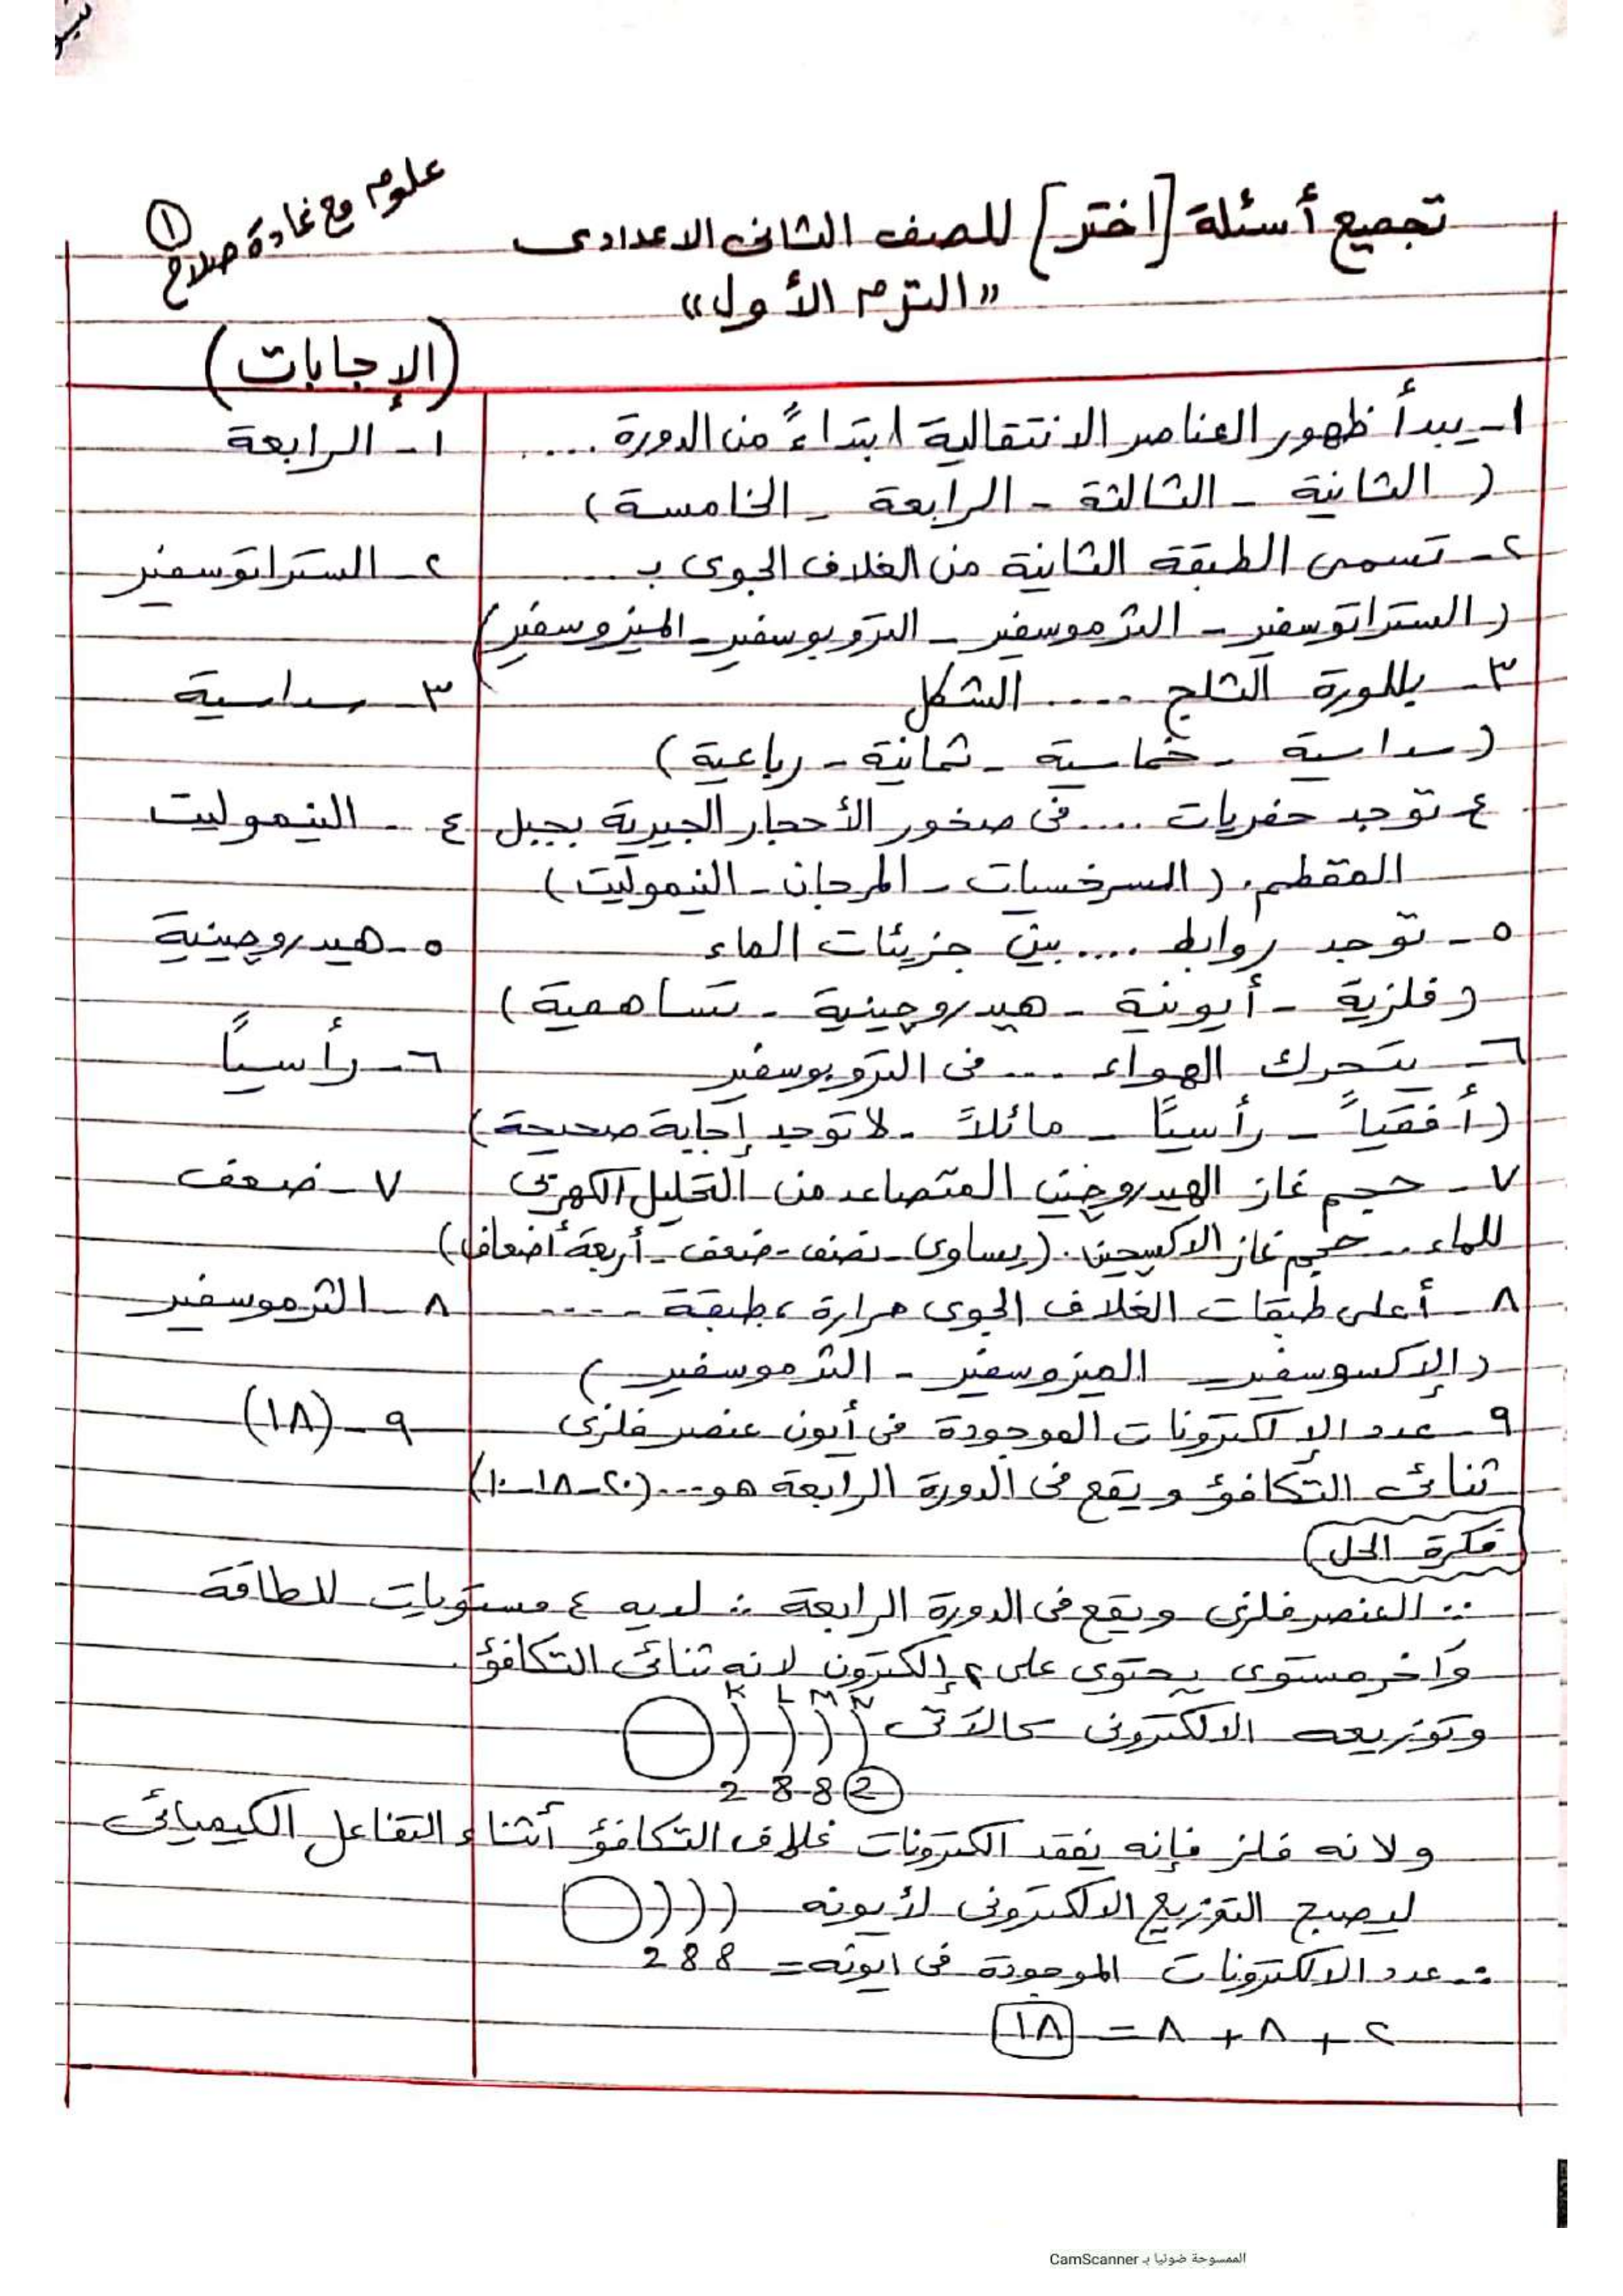 علوم مع غادة صلاح
١
تجميع أسئلة [اختر] للصف الثانى الاعدادى
"الترم الأول"
(الإجابات)
١- يبدأ ظهور العناصر الانتقالية ابتداءً من الدورة .... ١- الرابعة
(الثانية - الثالثة - الرابعة - الخامسة)
٢- تسمى الطبقة الثانية من الغلاف الجوى بـ .... ٢- الستراتوسفير
(الستراتوسفير - الثرموسفير - التروبوسفير - الميزوسفير)
٣- بللورة الثلج .... الشكل ٣- سداسية
(سداسية - خماسية - ثمانية - رباعية)
٤- توجد حفريات .... فى صخور الأحجار الجيرية بجبل ٤- النيموليت
المقطم. (السرخسيات - المرجان - النيموليت)
٥- توجد روابط .... بين جزيئات الماء ٥- هيدروچينية
(فلزية - أيونية - هيدروچينية - تساهمية)
٦- يتحرك الهواء .... فى التروبوسفير ٦- رأسياً
(أفقياً - رأسياً - مائلاً - لا توجد إجابة صحيحة)
٧- حجم غاز الهيدروچين المتصاعد من التحليل الكهربى ٧- ضعف
للماء .. حجم غاز الاكسچين. (يساوى - نصف - ضعف - أربعة أضعاف)
٨- أعلى طبقات الغلاف الجوى حرارة، طبقة .... ٨- الثرموسفير
(الإكسوسفير - الميزوسفير - الثرموسفير)
٩- عدد الإلكترونات الموجودة فى أيون عنصر فلزى ٩- (١٨)
ثنائى التكافؤ ويقع فى الدورة الرابعة هو ... (٢٠-١٨-١٠)
فكرة الحل
∵ العنصر فلزى ويقع فى الدورة الرابعة ∴ لديه ٤ مستويات للطاقة
وآخر مستوى يحتوى على ٢ إلكترون لانه ثنائى التكافؤ.
K L M N
وتوزيعه الالكترونى كالآتى
2 8 8 2
ولانه فلز فإنه يفقد الكترونات غلاف التكافؤ أثناء التفاعل الكيميائى
ليصبح التوزيع الالكترونى لأيونه
2 8 8
∴ عدد الالكترونات الموجودة فى ايونه =
٢ + ٨ + ٨ = ١٨
الممسوحة ضوئيا بـ CamScanner